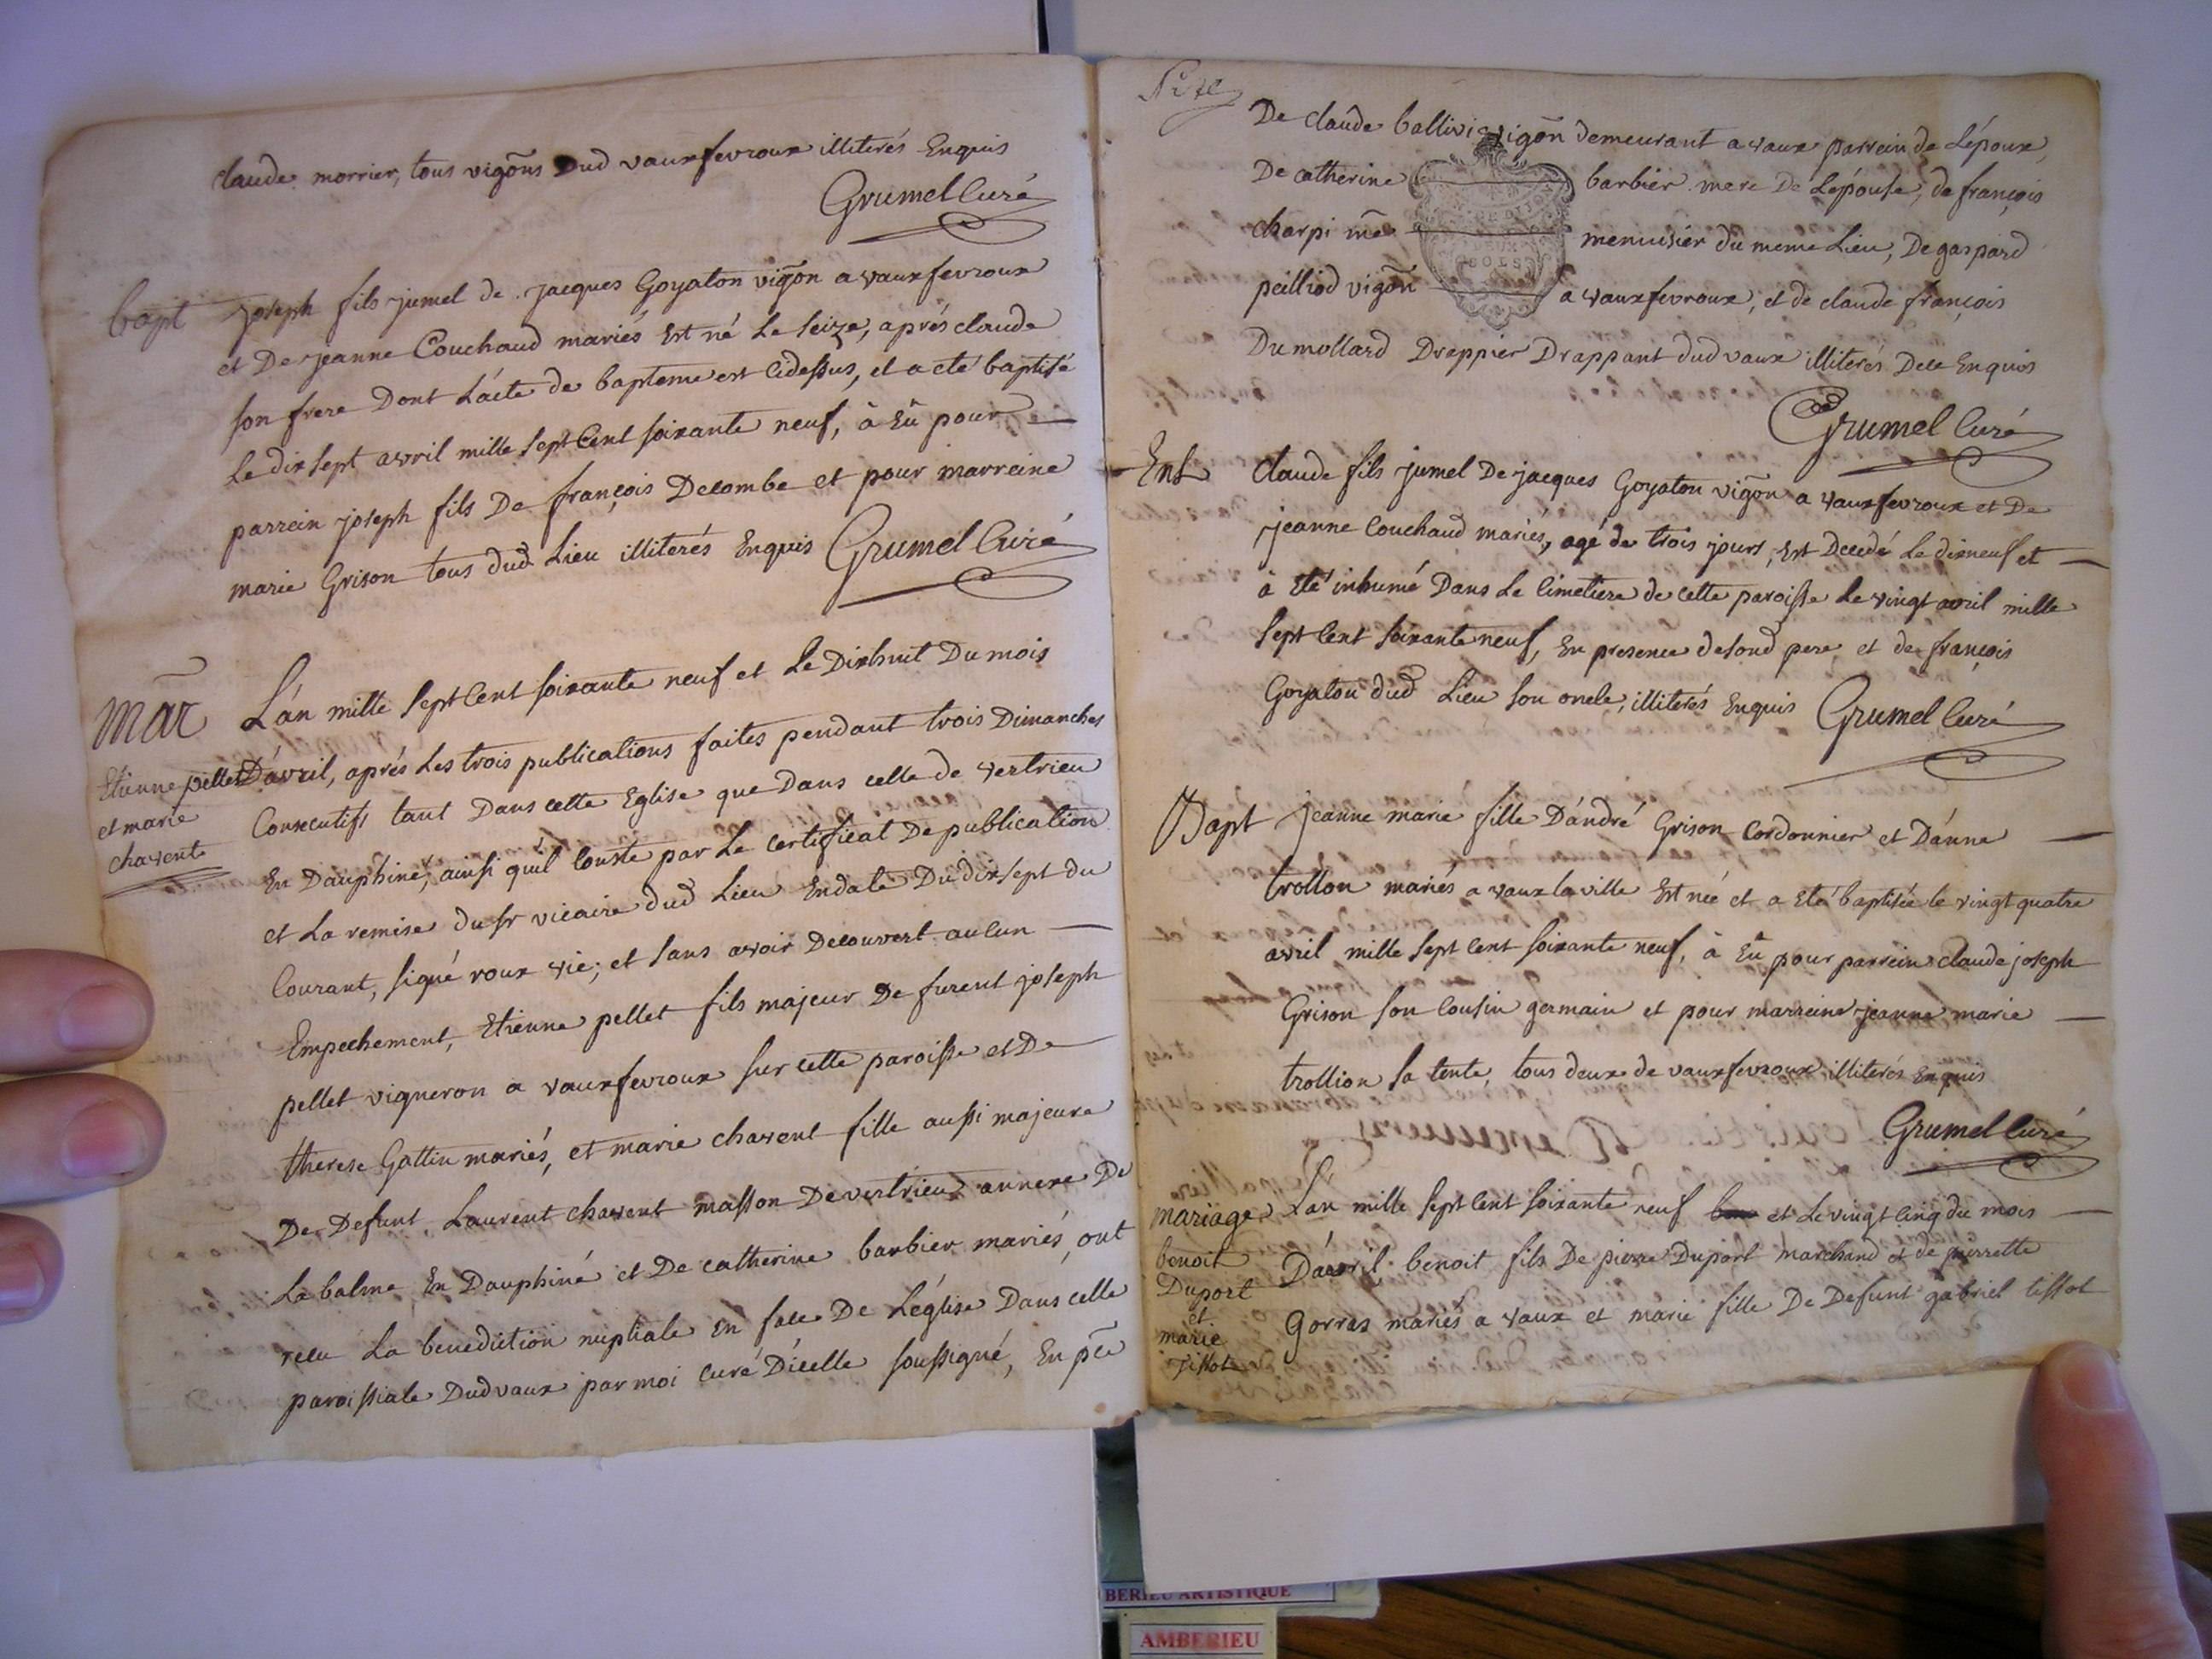 claude morrier, tous vigōns Dud vauxfevroux illiterés Enquis
Grumel Curé
bapt
joseph fils jumel de jacques Goyaton vigōn a vauxfevroux
et De jeanne Couchaud mariés Est né Le seize, aprés claude
son frere Dont L'acte de bapteme est Cidessus, et a eté baptisé
Le dix sept avril mille sept Cent soixante neuf, à Eû pour
parrein joseph fils De françois Decombe et pour marreine
marie Grison tous dud Lieu illiterés Enquis Grumel Curé
Mar
Etienne pellet
et marie
chavent
L'an mille sept Cent soixante neuf et Le Dixhuit Du mois
D'avril, aprés Les trois publications faites pendant trois Dimanches
Consecutifs tant Dans cette Eglise que Dans celle de vertrieu
En Dauphiné, ainsi quil Conste par Le Certificat De publication
et La remise du sr vicaire dud Lieu Endate Du dix sept du
Courant, signé roux vic; et sans avoir Decouvert aucun
Empechement, Etienne pellet fils majeur De furent joseph
pellet vigneron a vauxfevroux sur cette paroisse et De
therese Gattin mariés, et marie chavent fille aussi majeure
De Defunt Laurent chavent masson De vertrieu annexe De
La balme En Dauphiné et De catherine barbier mariés, ont
recu La benediction nuptiale En face De L'eglise Dans celle
paroissiale Dud vaux par moi curé D'icelle soussigné, En pce
De claude ballivi vigōn demeurant a vaux parrein de L'epoux,
De catherine barbier mere De L'epouse, de françois
charpi me menuisier du meme Lieu, De gaspard
peilliod vigōn a vauxfevroux, et de claude françois
Dumollard Drappier Drappant dud vaux illiterés Dece Enquis
Grumel Curé
Ent
Claude fils jumel De jacques Goyaton vigōn a vauxfevroux et De
jeanne Couchaud mariés, agé de trois jours, Est Decedé Le dixneuf et
à Eté inhumé Dans Le Cimetiere de cette paroisse Le vingt avril mille
sept Cent soixante neuf, En presence de sond pere, et de françois
Goyaton dud Lieu son oncle, illiterés Enquis Grumel Curé
Bapt
jeanne marie fille D'andré Grison Cordonnier et D'anne
trollon mariés a vaux la ville Est née et a Eté baptisée le vingt quatre
avril mille sept Cent soixante neuf, à Eû pour parrein claude joseph
Grison son Cousin germain et pour marreine jeanne marie
trollion sa tente, tous deux de vauxfevroux illiterés Enquis
Grumel Curé
mariage
benoit
Duport
et
marie
tissot
L'an mille sept Cent soixante neuf et Le vingt cinq du mois
D'avril, benoit fils De pierre Duport marchand et de pierrette
Gorras mariés a vaux et marie fille De Defunt gabriel tissot
AMBERIEU ARTISTIQUE
AMBERIEU